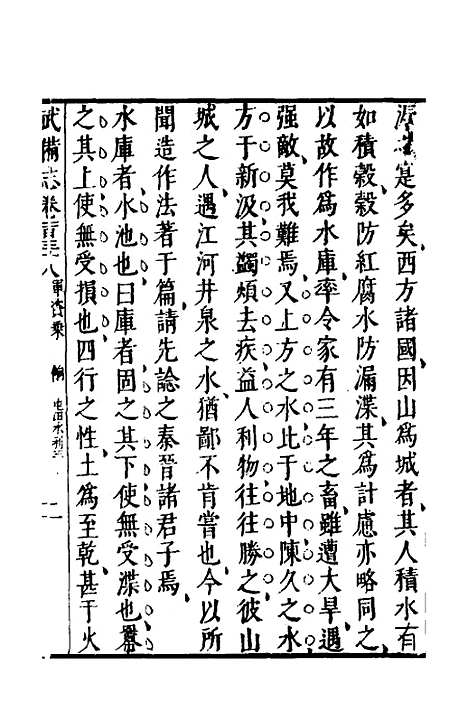 是多矣西方諸國因山爲城者其人積水有
如積穀穀防紅腐水防漏渫其爲計慮亦略同之
以故作爲水庫率令家有三年之畜雖遭大旱遇
强敵莫我難焉又上方之水比于地中陳久之水
方于新汲其蠲煩去疾益人利物往往勝之彼山
城之人遇江河井泉之水猶鄙不肯嘗也今以所
聞造作法著于篇請先諗之秦晉諸君子焉
水庫者水池也曰庫者固之其下使無受渫也冪
之其上使無受損也四行之性土爲至乾甚于火
武備志卷 八 軍資乘 餉 屯田水利